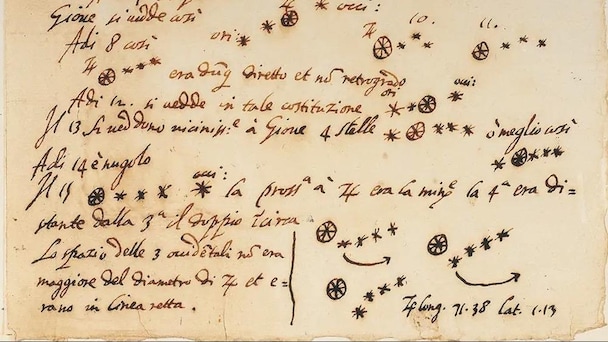 Gioue si uedde così ♃ occi:
Adi 8 così ori: ♃ 10. 11.
♃ era dũq diretto et nõ retrogrado
Adi 12. si uedde in tale costituzione ori occi:
Il 13 si ueddono uiciniss:e à Gioue 4 stelle ò meglio così
Adi 14 è nugolo
Il 15 occi: la pross.a à ♃ era la min.e la 4.a era di=
stante dalla 3.a il doppio ĩ circa
Lo spazio delle 3 occidẽtali nõ era
maggiore del diametro di ♃ et e=
rano in linea retta.
♃ long. 71.38 Lat. 1.13